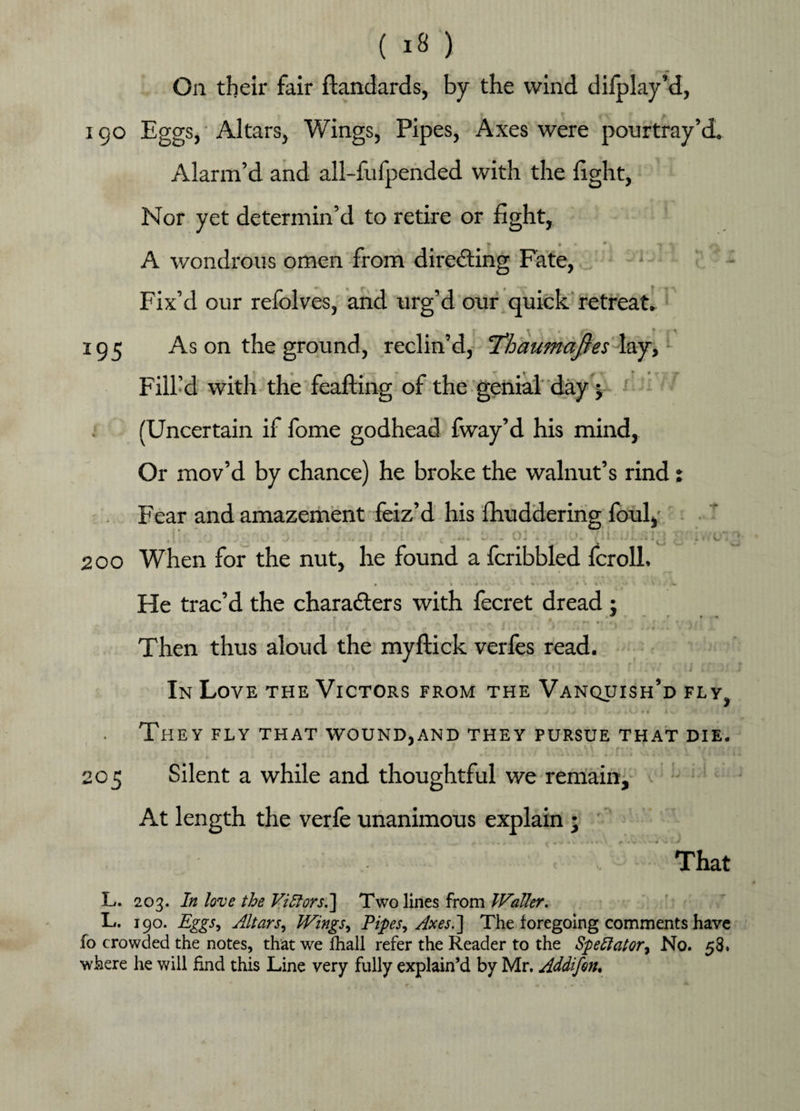 ( 18 )
On their fair ſtandards, by the wind diſplay'd,
190 Eggs, Altars, Wings, Pipes, Axes were pourtray'd.
Alarm'd and all-ſuſpended with the ſight,
Nor yet determin'd to retire or fight,
A wondrous omen from directing Fate,
Fix'd our reſolves, and urg'd our quick retreat.
195 As on the ground, reclin'd, Thaumaſtes lay,
Fill'd with the feaſting of the genial day;
(Uncertain if ſome godhead ſway'd his mind,
Or mov'd by chance) he broke the walnut's rind:
Fear and amazement ſeiz'd his ſhuddering ſoul,
200 When for the nut, he found a ſcribbled ſcroll.
He trac'd the characters with ſecret dread;
Then thus aloud the myſtick verſes read.
In Love the Victors from the Vanquish'd fly,
They fly that wound, and they pursue that die.
205 Silent a while and thoughtful we remain,
At length the verſe unanimous explain;
That
L. 203. In love the Victors.] Two lines from Waller.
L. 190. Eggs, Altars, Wings, Pipes, Axes.] The foregoing comments have
ſo crowded the notes, that we ſhall refer the Reader to the Spectator, No. 58.
where he will find this Line very fully explain'd by Mr. Addiſon.